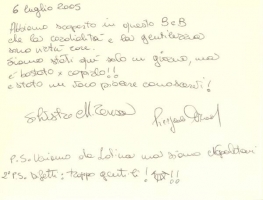 6 luglio 2005
Abbiamo scoperto in questo B&B
che la cordialità e la gentilezza
sono di casa.
Siamo stati qui solo un giorno, ma
è bastato x capirlo!!
È stato un vero piacere conoscervi!
P.S. Veniamo da Latina ma siamo Napoletani
2° P.S. troppo gentili!!!